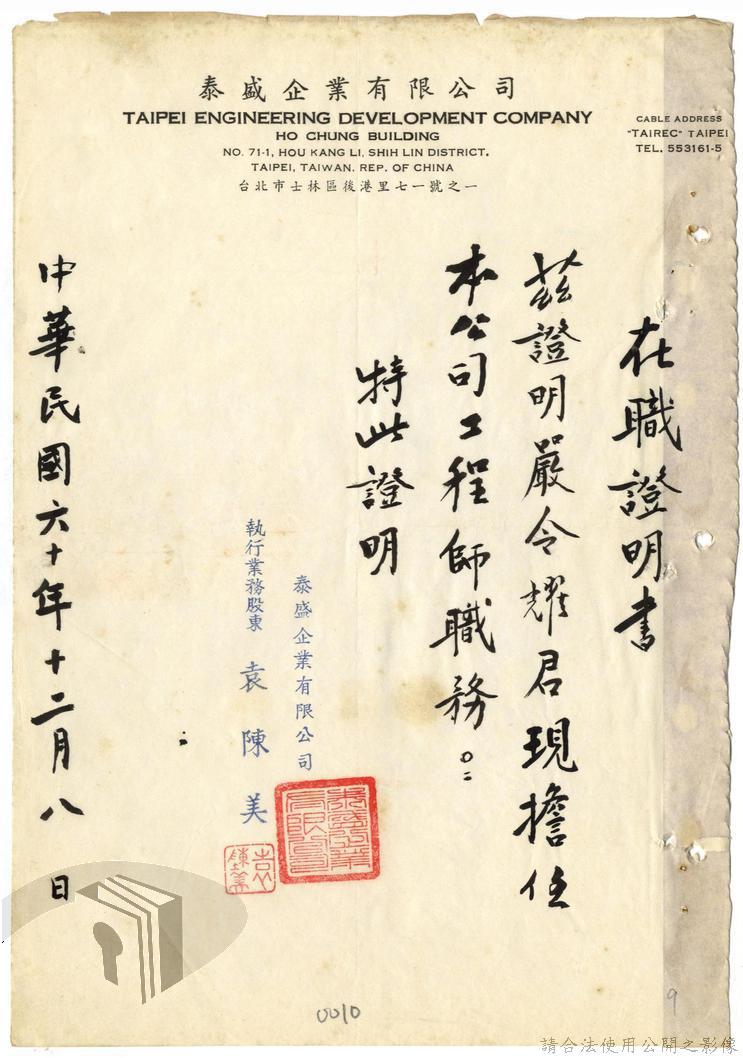 泰盛企業有限公司
TAIPEI ENGINEERING DEVELOPMENT COMPANY
HO CHUNG BUILDING
NO. 71-1, HOU KANG LI, SHIH LIN DISTRICT.
TAIPEI, TAIWAN. REP. OF CHINA
台北市士林區後港里七一號之一
CABLE ADDRESS
"TAIREC" TAIPEI
TEL. 553161-5
在職證明書
茲證明嚴令耀君現擔任
本公司工程師職務。
特此證明
泰盛企業有限公司
執行業務股東 袁陳美
泰盛企業有限公司
袁陳美
中華民國六十年十二月八日
0010
9
請合法使用公開之影像